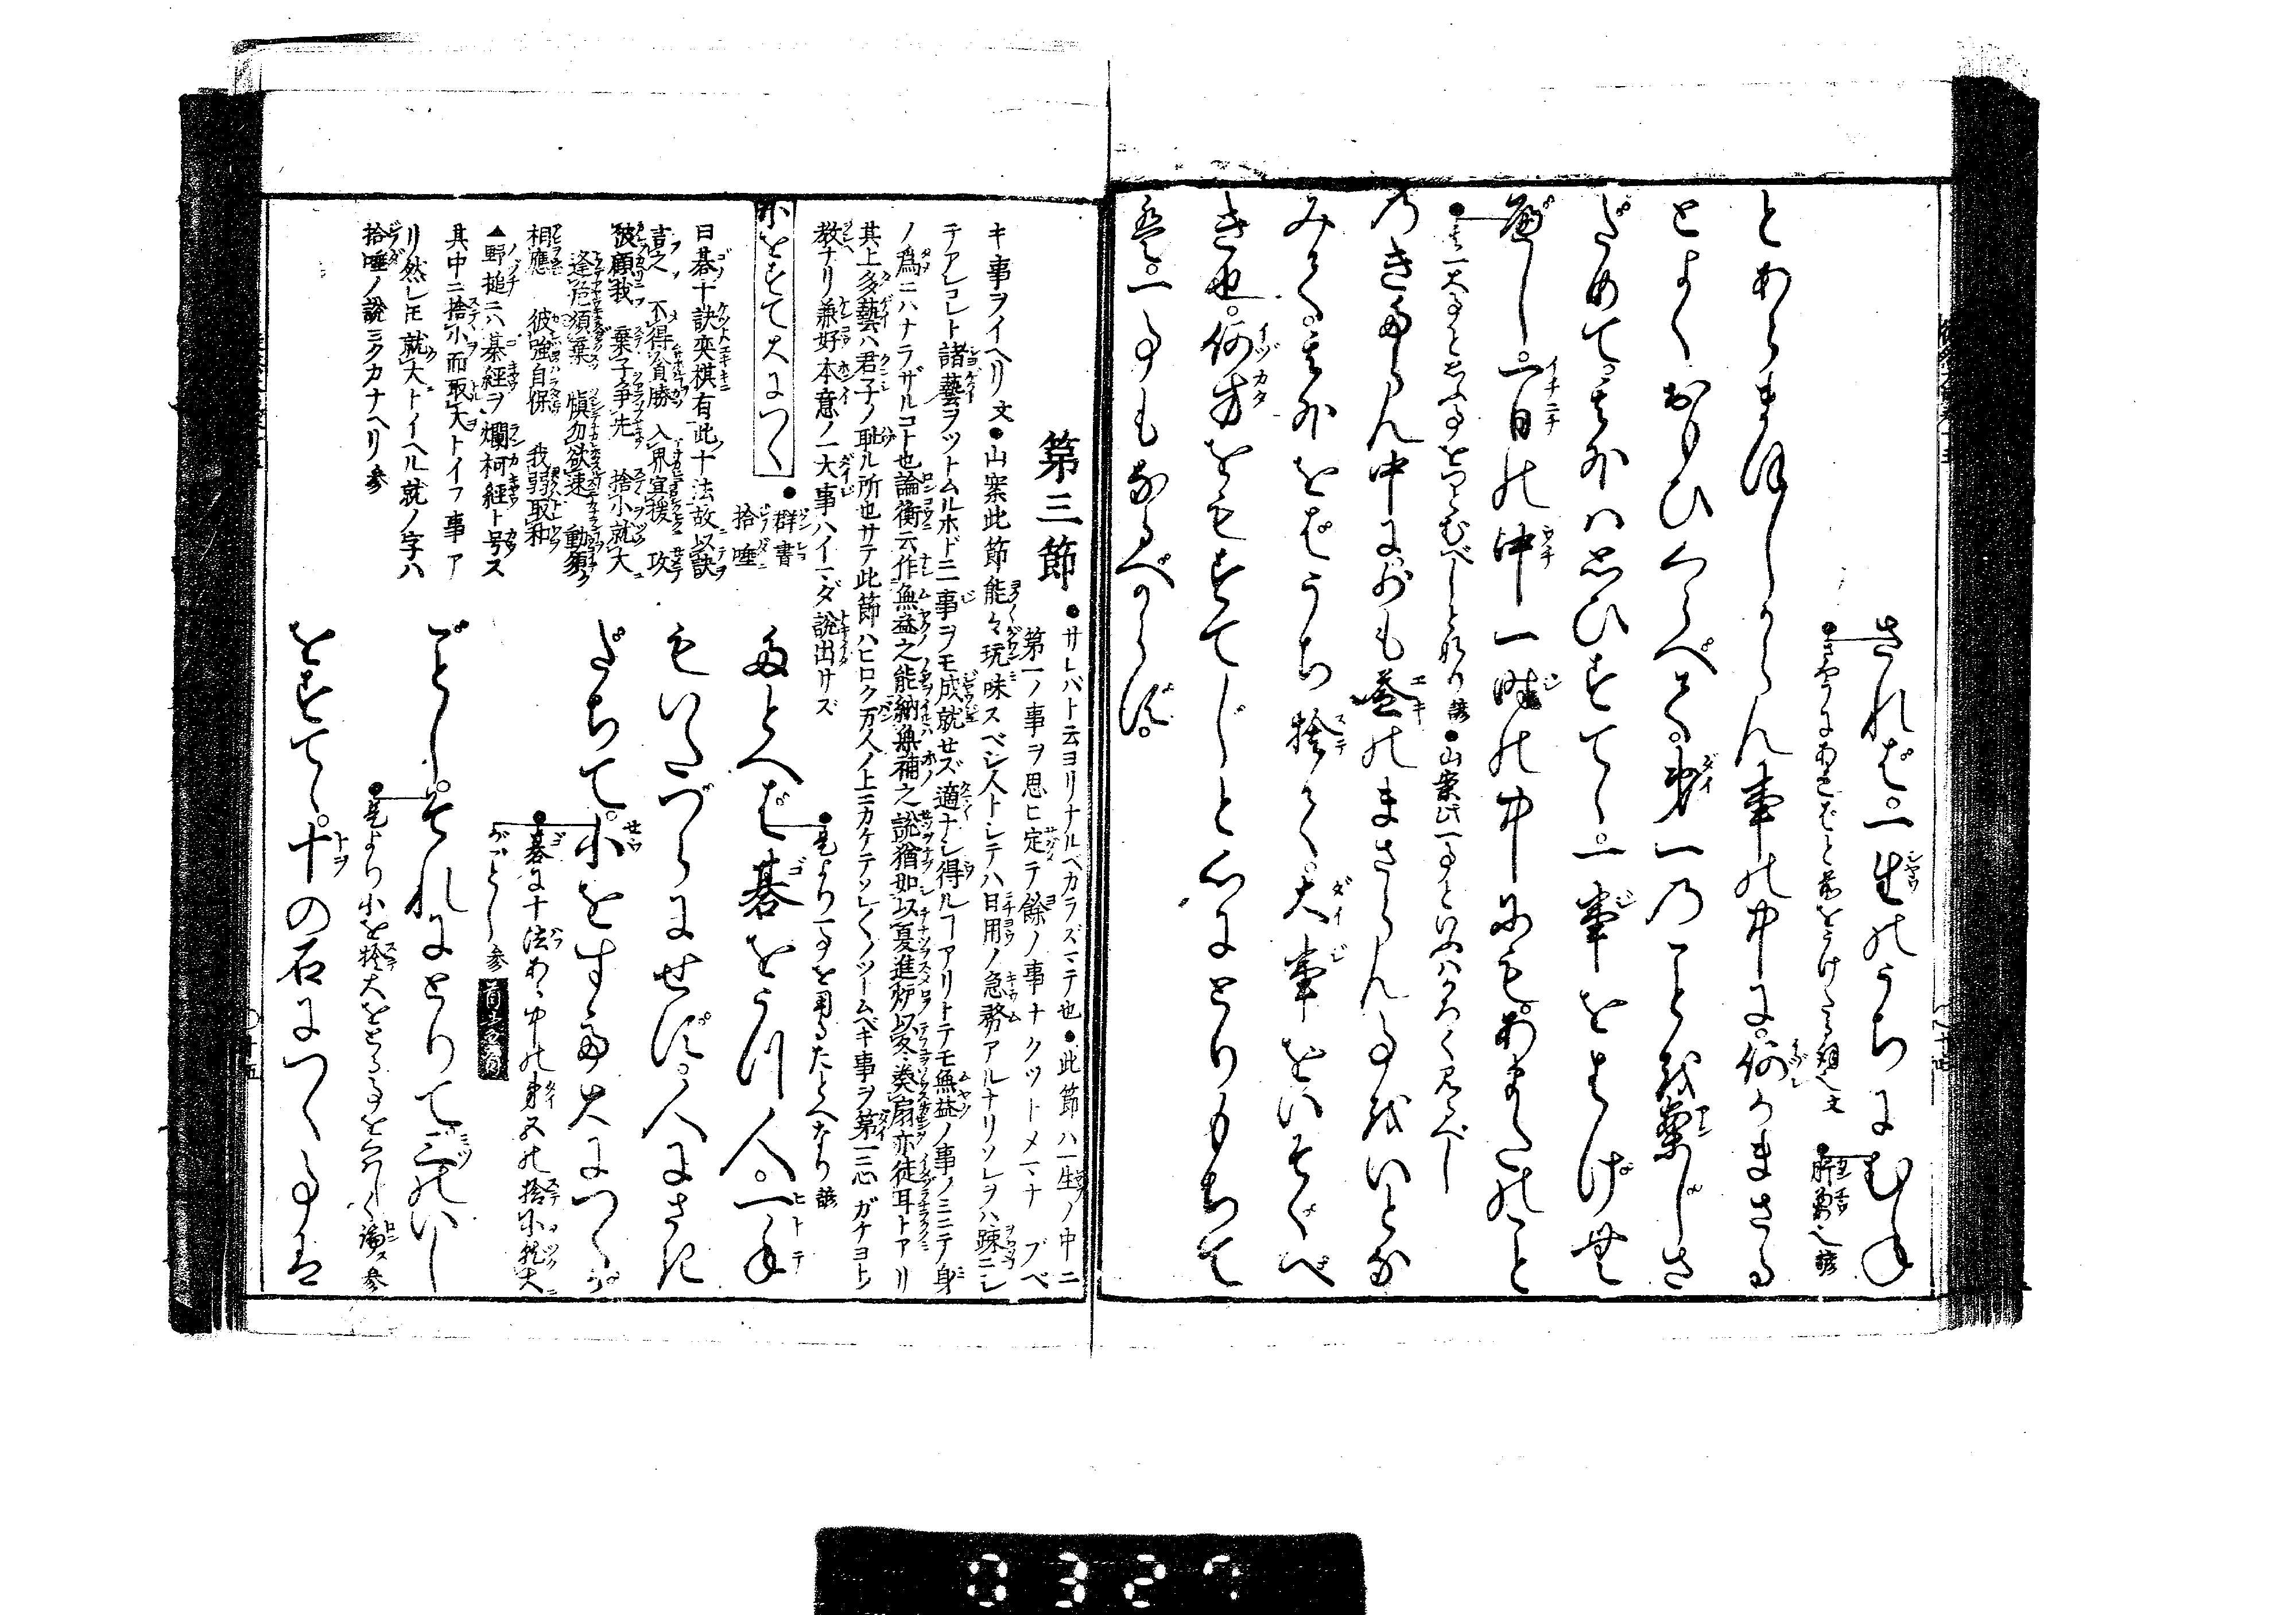 されば。一生のうちにむね
●さやうにあればと前をうけたる詞也 文
とあらまほしからん事の中に。何かまさる
とよくおもひくらべて。第一のことを案じさ
だめて。其外は思ひすてゝ。一事をはげむ
べし。一日の中一時の中にも。あまたのこと
●其一大事と思ふ事をつとむべしとなり 諺 ●山案此一事といふはかろく見べし
のきたらん中に。少も益のまさらん事をいとな
みて。其外をばうち捨て。大事をいそぐべ
き也。何方をもすてじと心にとりもちて
は。一事もなるべからず。
第三節
●サレバト云ヨリナルベカラズマテ也●此節ハ一生ノ中ニ
第一ノ事ヲ思ヒ定テ餘ノ事ナクツトメマナブベ
キ事ヲイヘリ 文●山案此節能々玩味スベシ人トシテハ日用ノ急務アルナリソレヲハ疎ニシ
テアレコレト諸藝ヲツトムルホドニ一事ヲモ成就せズ適ナシ得ルヿアリトテモ無益ノ事ノミニテ身
ノ爲ニハナラザルコト也論衡云作無益之能納無補之說猶如以夏進炉以冬奏扇亦徒耳トアリ
其上多藝ハ君子ノ耻ル所也サテ此節ハヒロク万人ノ上ニカケテソレ〳〵ノツトムベキ事ヲ第一ニ心ガケヨトノ
教ナリ兼好本意ノ一大事ハイマダ說出サズ
たとへば碁をうつ人。一手
●是より一事を用るたとへなり 諺
もいたづらにせず。人にさき
だちて。小をすて大につくが
●碁に十法あり中の第五の捨小就大
がごとし 参
ごとし。それにとりて三のいし
●是より小を捨大をとる事をくはしく演ス 参
をすてゝ。十の石につく事は
小をすて大につく
●群書
拾唾ニ
曰碁十訣奕棋有此十法故以訣
言之 不得貪勝 入界宜援 攻
彼顧我 棄子爭先 捨小就大
逢危須棄 愼勿欲速 動須
相應 彼強自保 我弱取和
▲野槌ニハ碁経ヲ爛柯経ト号ス
其中ニ捨小而取大トイフ事ア
リ然レ𪜈就大トイヘル就ノ字ハ
拾唾ノ說ニクカナヘリ 参
0327